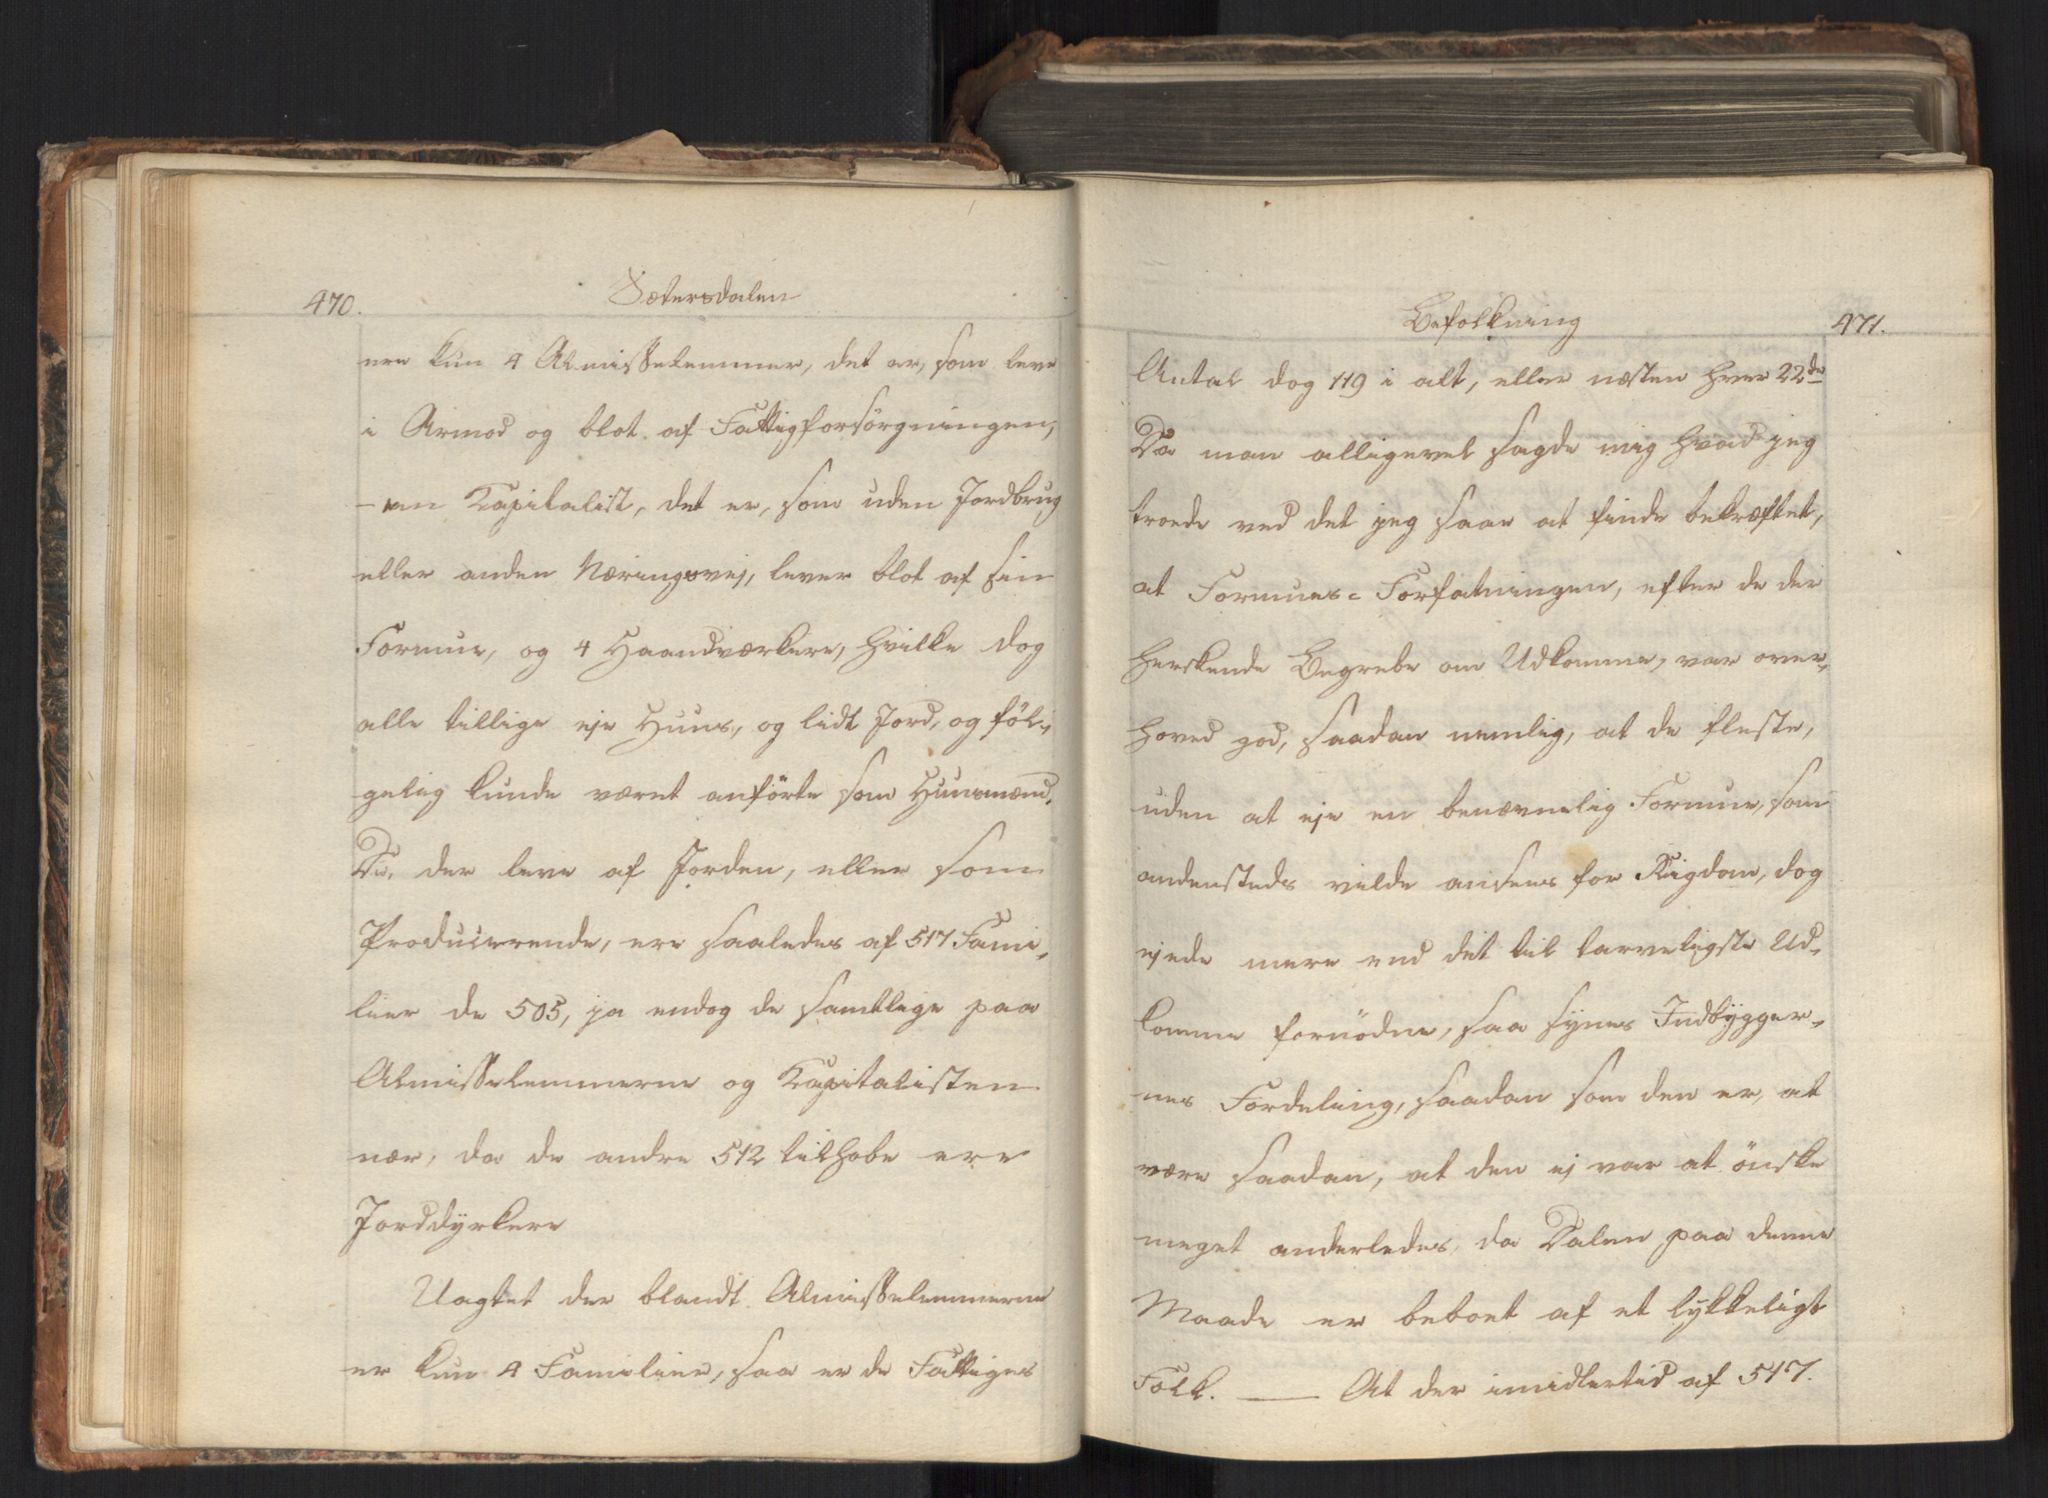 470.
Sætersdalen
ere kun 4 Almisselemmer, det er, som leve
i Armod og blot af Fattigforsörgningen,
- en Kapitalist, det er, som uden Jordbrug
eller anden Næringsvej, lever blot af sin
Formue, og 4 Haandværkere, hvilke dog
alle tillige eje Huus, og lidt Jord, og föl-
gelig kunde været anförte som Huusmænd.
De, der leve af Jorden, eller som
Producerende, ere saaledes af 517 Fami-
lier de 505, ja endog de samtlige paa
Almisselemmerne og Kapitalisten
nær, da de andre 512 tilhobe ere
Jorddyrkere
Uagtet der blandt Almisselemmerne
er kun 4 Familier, saa er de Fattiges
Befolkning
471.
Antal dog 119 i alt, eller næsten hver 22de
Da man alligevel sagde mig hvad jeg
troede ved det jeg saae at finde bekræftet,
at Formues-Forfatningen, efter de der
herskende Begrebe om Udkomme, var over-
hoved god, saadan nemlig, at de fleste,
uden at eje en benævnelig Formue, som
andensteds vilde ansees for Rigdom, dog
ejede mere end det til tarveligste Ud-
komme fornödne, saa synes Indbygger-
nes Fordeling, saadan som den er, at
være saadan, at den ej var at önske
meget anderledes, da Dalen paa denne
Maade er beboet af et lykkeligt
Folk. — At der imidlertid af 517.